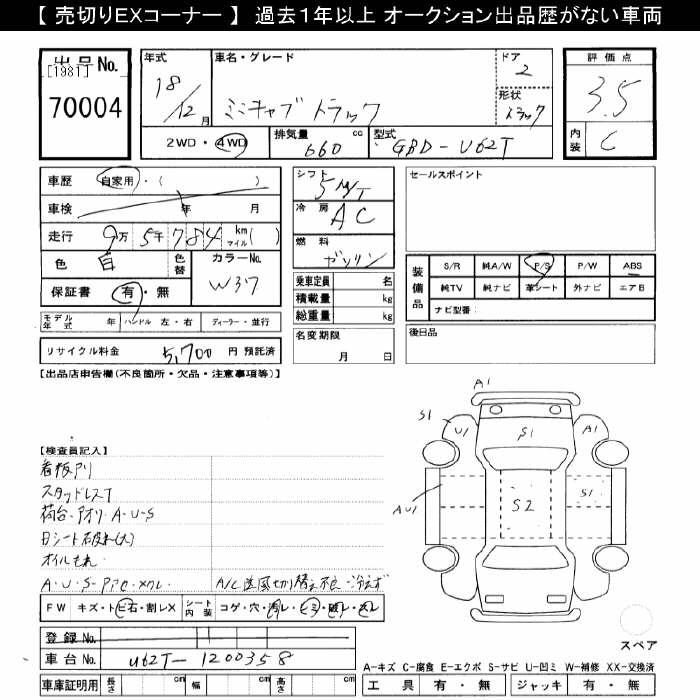 【 売切りEXコーナー 】 過去1年以上 オークション出品歴がない車両
出品No.
[1981]
70004
年式
18/12月
車名・グレード
ミニキャブ トラック
ドア
2
形状
トラック
評価点
3.5
内装
C
2WD・4WD
排気量 660 cc
型式 GBD-U62T
車歴 自家用・( )
車検 年 月
走行 9万5千784 km マイル( )
色 白 色替
カラーNo.
W37
保証書 有・無
モデル年式 年 ハンドル 左・右 ディーラー・並行
リサイクル料金 5,700 円 預託済
シフト
5MT
冷房
AC
燃料
ガソリン
乗車定員 名
積載量 kg
総重量 kg
名変期限
月 日
セールスポイント
装備品
S/R 純A/W P/S P/W ABS
純TV 純ナビ 革シート 外ナビ エアB
ナビ型番:
後日品
【出品店申告欄(不良箇所・欠品・注意事項等)】
【検査員記入】
看板アリ
スタッドレスT
荷台・アオリ・A・U・S
Dシート破れ(大)
オイルもれ
A・U・S・
A/C送風切り替え不良・冷えず
FW キズ・トビ石・割レX シート内装 コゲ・穴・汚レ・シミ・破レ・スレ
登録No.
車台No. U62T-1200358
車庫証明用 長さ cm 幅 cm 高さ cm
A1
S1
U1
S1
A1
AU1
S2
S1
スペア
A-キズ C-腐食 E-エクボ S-サビ U-凹ミ W-補修 XX-交換済
工具 有・無 ジャッキ 有・無